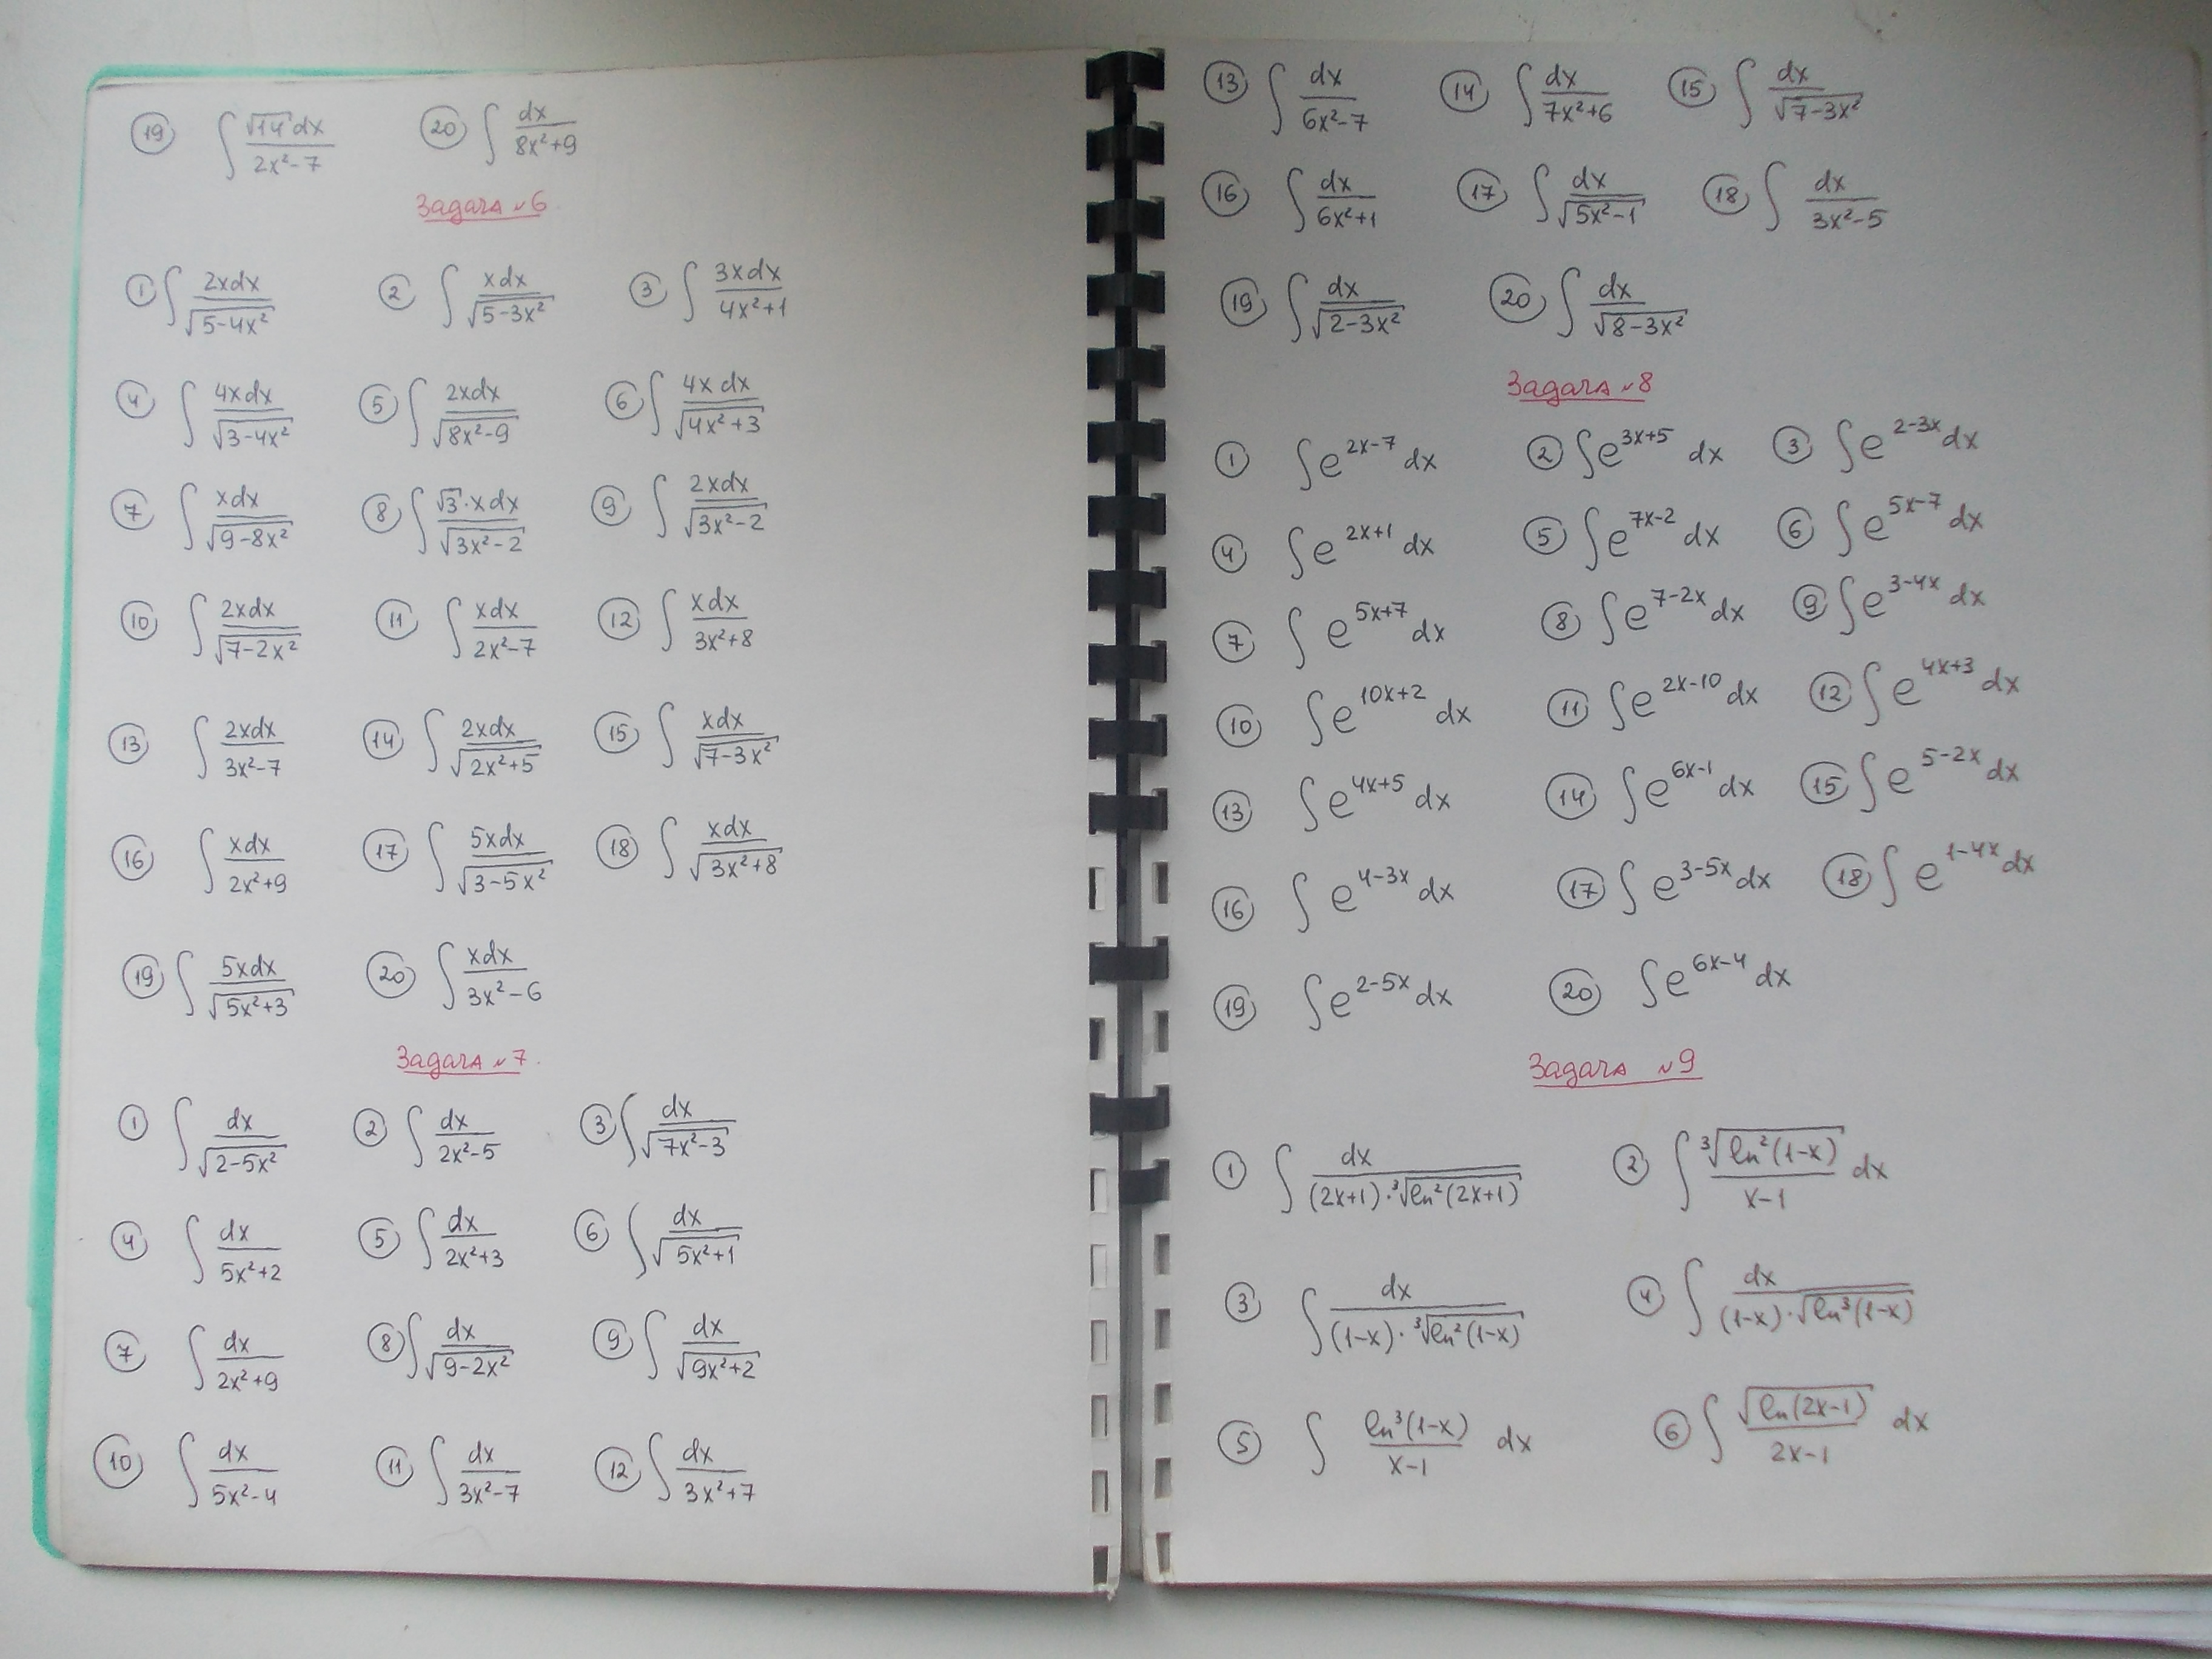 19 ∫ √14 dx / (2x²-7) 20 ∫ dx / (8x²+9)
Задача №6.
1 ∫ 2xdx / √(5-4x²) 2 ∫ xdx / √(5-3x²) 3 ∫ 3xdx / (4x²+1)
4 ∫ 4xdx / √(3-4x²) 5 ∫ 2xdx / √(8x²-9) 6 ∫ 4xdx / √(4x²+3)
7 ∫ xdx / √(9-8x²) 8 ∫ √3·xdx / √(3x²-2) 9 ∫ 2xdx / √(3x²-2)
10 ∫ 2xdx / √(7-2x²) 11 ∫ xdx / (2x²-7) 12 ∫ xdx / (3x²+8)
13 ∫ 2xdx / (3x²-7) 14 ∫ 2xdx / √(2x²+5) 15 ∫ xdx / √(7-3x²)
16 ∫ xdx / (2x²+9) 17 ∫ 5xdx / √(3-5x²) 18 ∫ xdx / √(3x²+8)
19 ∫ 5xdx / √(5x²+3) 20 ∫ xdx / (3x²-6)
Задача №7.
1 ∫ dx / √(2-5x²) 2 ∫ dx / (2x²-5) 3 ∫ dx / √(7x²-3)
4 ∫ dx / (5x²+2) 5 ∫ dx / (2x²+3) 6 ∫ dx / √(5x²+1)
7 ∫ dx / (2x²+9) 8 ∫ dx / √(9-2x²) 9 ∫ dx / √(9x²+2)
10 ∫ dx / (5x²-4) 11 ∫ dx / (3x²-7) 12 ∫ dx / (3x²+7)
13 ∫ dx / (6x²-7) 14 ∫ dx / (7x²+6) 15 ∫ dx / √(7-3x²)
16 ∫ dx / (6x²+1) 17 ∫ dx / √(5x²-1) 18 ∫ dx / (3x²-5)
19 ∫ dx / √(2-3x²) 20 ∫ dx / √(8-3x²)
Задача №8
1 ∫ e^(2x-7) dx 2 ∫ e^(3x+5) dx 3 ∫ e^(2-3x) dx
4 ∫ e^(2x+1) dx 5 ∫ e^(7x-2) dx 6 ∫ e^(5x-7) dx
7 ∫ e^(5x+7) dx 8 ∫ e^(7-2x) dx 9 ∫ e^(3-4x) dx
10 ∫ e^(10x+2) dx 11 ∫ e^(2x-10) dx 12 ∫ e^(4x+3) dx
13 ∫ e^(4x+5) dx 14 ∫ e^(6x-1) dx 15 ∫ e^(5-2x) dx
16 ∫ e^(4-3x) dx 17 ∫ e^(3-5x) dx 18 ∫ e^(1-4x) dx
19 ∫ e^(2-5x) dx 20 ∫ e^(6x-4) dx
Задача №9
1 ∫ dx / ((2x+1)·³√(ln²(2x+1))) 2 ∫ ³√(ln²(1-x)) / (x-1) dx
3 ∫ dx / ((1-x)·³√(ln²(1-x))) 4 ∫ dx / ((1-x)·√(ln³(1-x)))
5 ∫ ln³(1-x) / (x-1) dx 6 ∫ √(ln(2x-1)) / (2x-1) dx